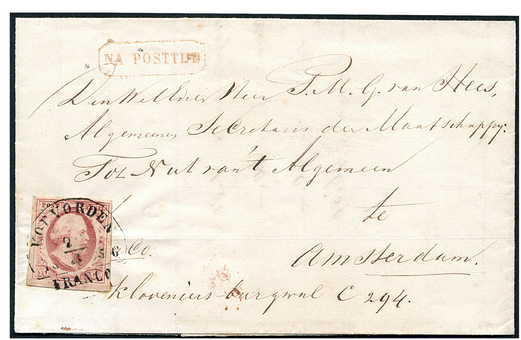 NA POSTTIJD
Den WelEdelen Heer P. M. G. van Hees,
Algemeenen Secretaris der Maatschappij:
Tot Nut van't Algemeen
te
Amsterdam.
Co.
Kloveniers-burgwal C 294.
KOEVORDEN
2/4
FRANCO